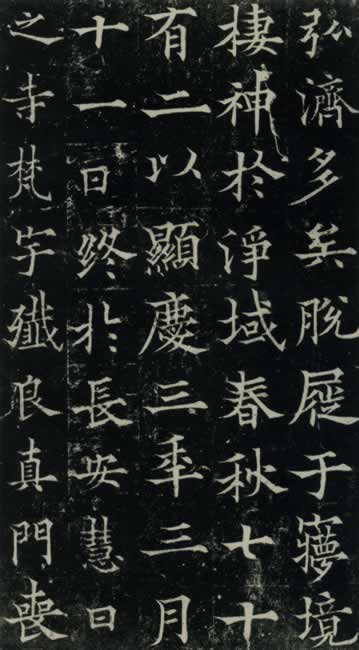 弘濟多矣脫屣于㝱境
棲神於淨域春秋七十
有二以顯慶三年三月
十一日終於長安慧日
之寺梵宇殲良真門喪